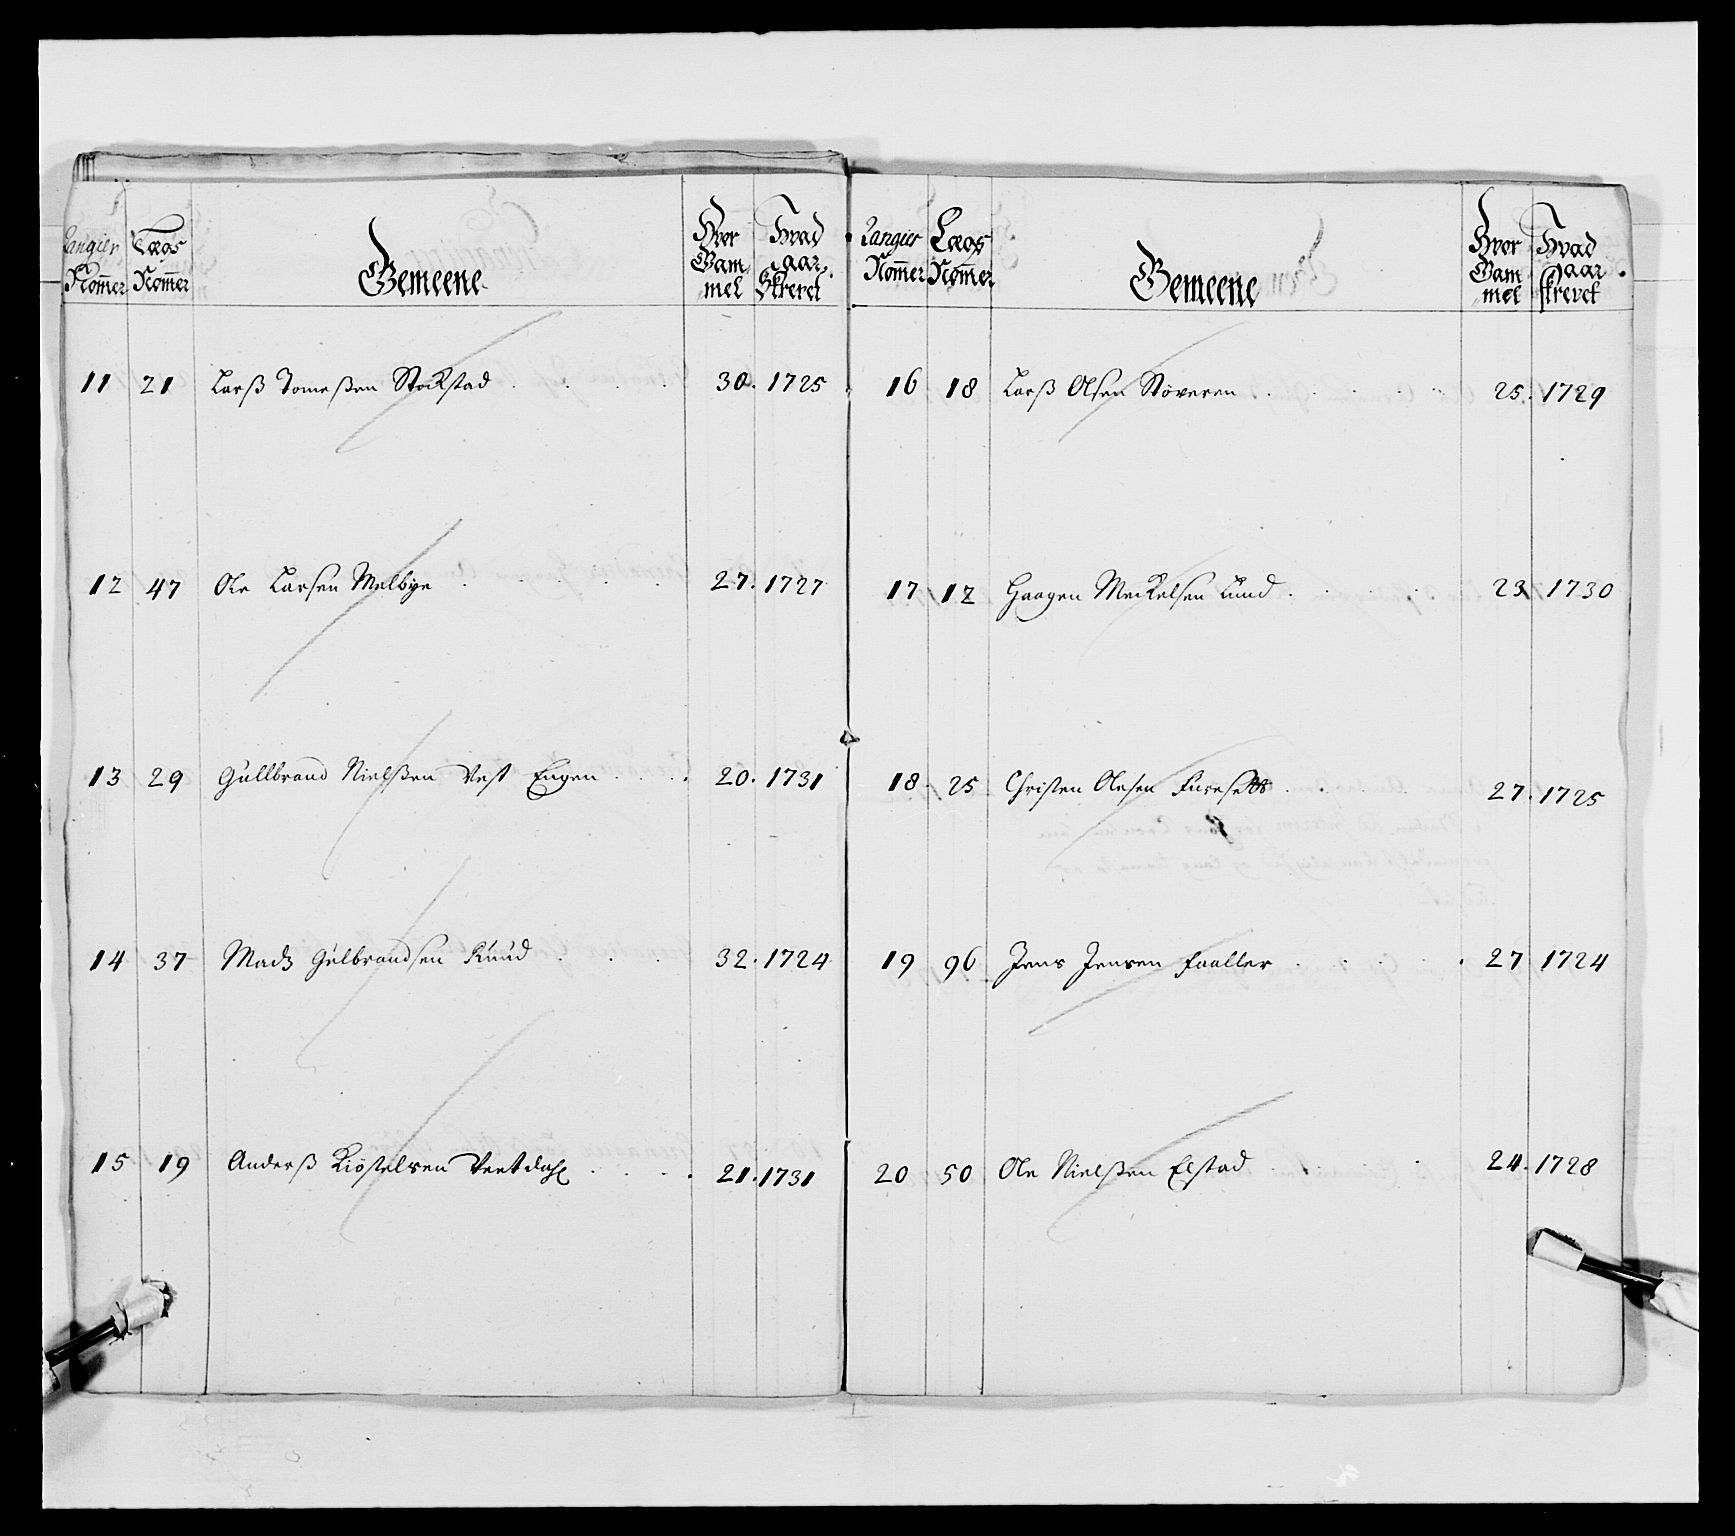 Rangier Nom̄er | Lægs Nom̄er | Gemeene | Hvor Gammel | Hvad aar Skrevet
11 21 Larß Tomeßen Stockstad 30. 1725
12 47 Ole Larsen Melbye 27. 1727
13 29 Gullbrand Nielßen Vest Engen 20. 1731
14 37 Madz Gulbrandsen Ruud 32. 1724
15 19 Anderß Kiøstelsen 21. 1731
Rangier Nom̄er | Lægs Nom̄er | Gemeene | Hvor Gammel | Hvad aar skrevet
16 18 Larß Olsen Støveren 25. 1729
17 12 Haagen Meckelsen Lund 23 1730
18. 25 Christen Olesen 27. 1725
19 96 Jens Jensen Faaller 27 1724
20 50 Ole Nielßen Elstad 24. 1728